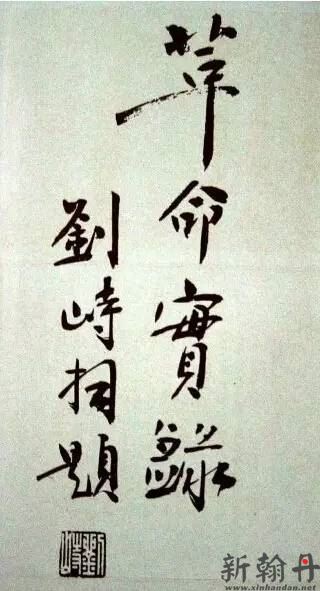 革命實錄
劉峙題
劉峙
新翰丹
www.xinhandan.net